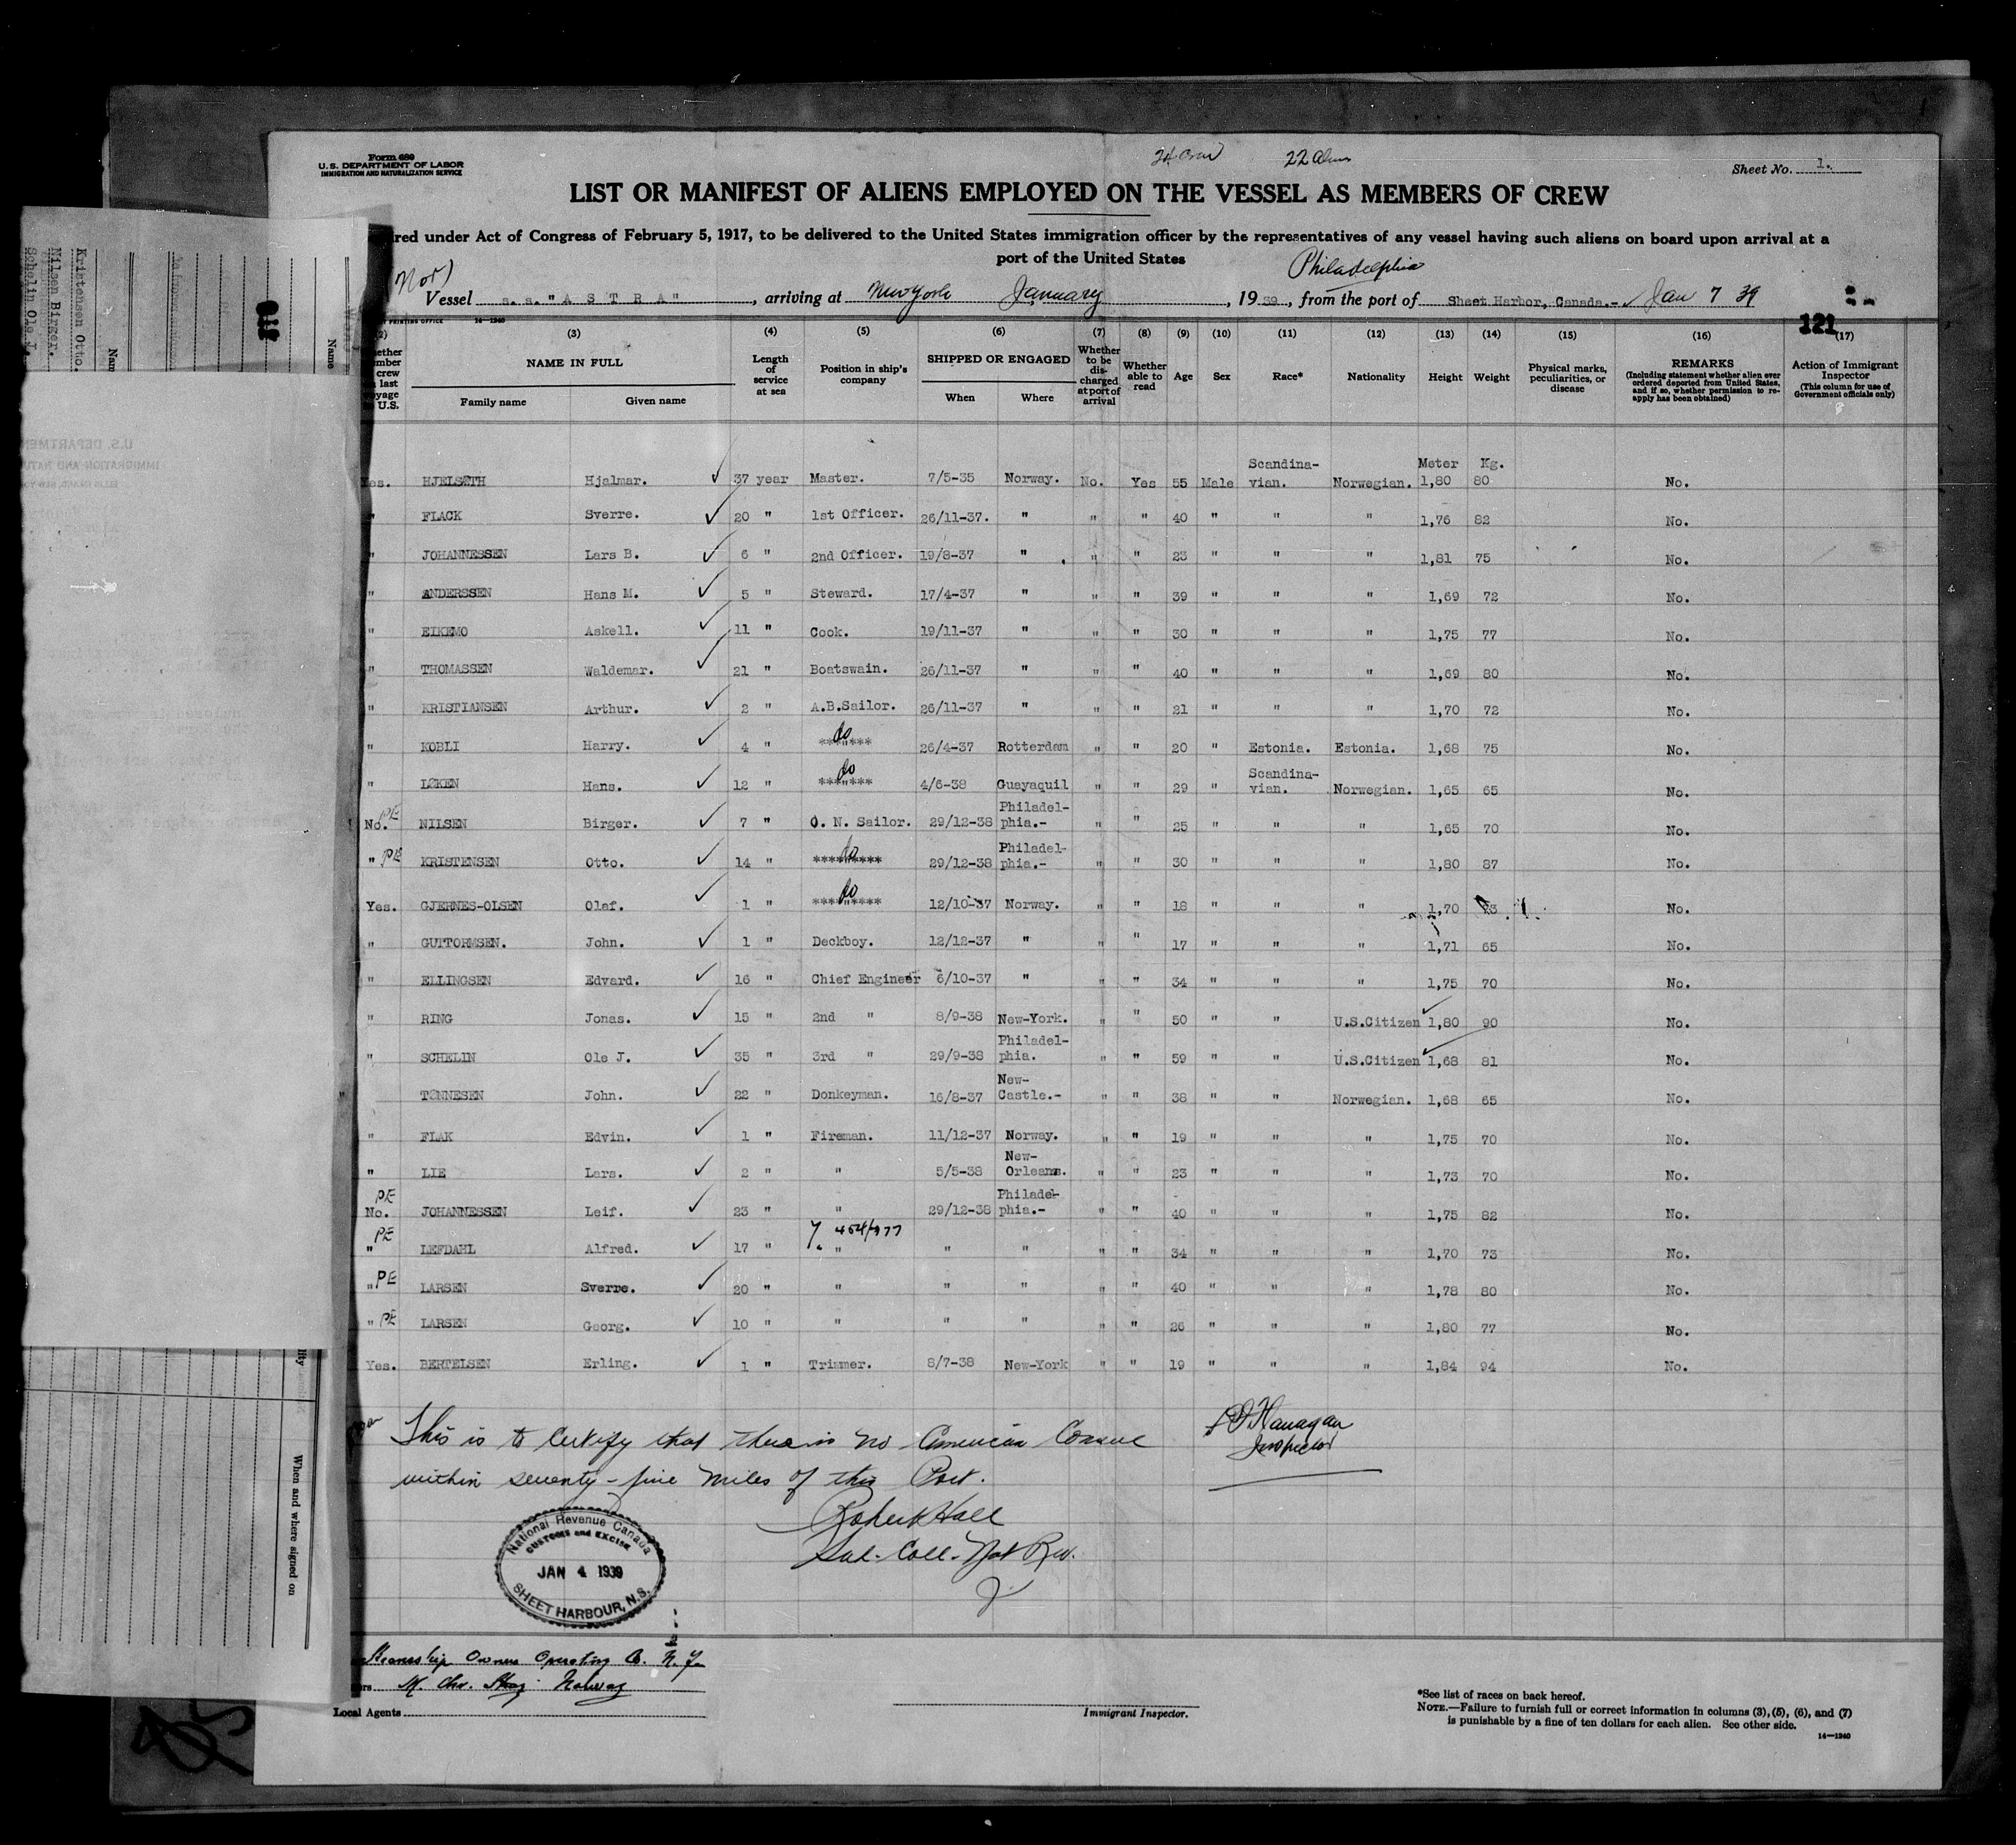 Form 680
U. S. DEPARTMENT OF LABOR
IMMIGRATION AND NATURALIZATION SERVICE
24 Crew 22 Aliens
Sheet No. 1.
LIST OR MANIFEST OF ALIENS EMPLOYED ON THE VESSEL AS MEMBERS OF CREW
ired under Act of Congress of February 5, 1917, to be delivered to the United States immigration officer by the representatives of any vessel having such aliens on board upon arrival at a
port of the United States
Nor) Philadelphia
Vessel s.s. "A S T R A" , arriving at New York January , 19 39 , from the port of Sheet Harbor, Canada.- Jan 7 39
PRINTING OFFICE 14—1240
121
(2) (3) (4) (5) (6) (7) (8) (9) (10) (11) (12) (13) (14) (15) (16) (17)
NAME IN FULL
Family name Given name
Length of service at sea
Position in ship's company
SHIPPED OR ENGAGED
When Where
Whether to be discharged at port of arrival
Whether able to read
Age Sex Race* Nationality Height Weight
Physical marks, peculiarities, or disease
REMARKS
(Including statement whether alien ever ordered deported from United States, and if so, whether permission to re-apply has been obtained)
Action of Immigrant Inspector
(This column for use of Government officials only)
Scandina- Meter Kg.
Yes. HJELSETH Hjalmar. ✓ 37 year Master. 7/5-35 Norway. No. Yes 55 Male vian. Norwegian. 1,80 80 No.
" FLACK Sverre. ✓ 20 " 1st Officer. 26/11-37. " " " 40 " " " 1,76 82 No.
" JOHANNESSEN Lars B. ✓ 6 " 2nd Officer. 19/8-37 " " " 23 " " " 1,81 75 No.
" ANDERSSEN Hans M. ✓ 5 " Steward. 17/4-37 " " " 39 " " " 1,69 72 No.
" EIKEMO Askell. ✓ 11 " Cook. 19/11-37 " " " 30 " " " 1,75 77 No.
" THOMASSEN Waldemar. ✓ 21 " Boatswain. 26/11-37 " " " 40 " " " 1,69 80 No.
" KRISTIANSEN Arthur. ✓ 2 " A.B.Sailor. 26/11-37 " " " 21 " " " 1,70 72 No.
" KOBLI Harry. ✓ 4 " do 26/4-37 Rotterdam " " 20 " Estonia. Estonia. 1,68 75 No.
Scandina-
" LØKEN Hans. ✓ 12 " do 4/6-38 Guayaquil " " 29 " vian. Norwegian. 1,65 65 No.
PE Philadel-
No. NILSEN Birger. ✓ 7 " O. N. Sailor. 29/12-38 phia.- " " 25 " " " 1,65 70 No.
Philadel-
" PE KRISTENSEN Otto. ✓ 14 " do 29/12-38 phia.- " " 30 " " " 1,80 87 No.
Yes. GJERNES-OLSEN Olaf. ✓ 1 " do 12/10-37 Norway. " " 18 " " " 1,70 No.
" GUTTORMSEN. John. ✓ 1 " Deckboy. 12/12-37 " " " 17 " " " 1,71 65 No.
" ELLINGSEN Edvard. ✓ 16 " Chief Engineer 6/10-37 " " " 34 " " " 1,75 70 No.
" RING Jonas. ✓ 15 " 2nd " 8/9-38 New-York. " " 50 " " U.S.Citizen ✓ 1,80 90 No.
Philadel-
" SCHELIN Ole J. ✓ 35 " 3rd " 29/9-38 phia. " " 59 " " U.S.Citizen ✓ 1,68 81 No.
New-
TØNNESEN John. ✓ 22 " Donkeyman. 16/8-37 Castle.- " " 38 " " Norwegian. 1,68 65 No.
" FLAK Edvin. ✓ 1 " Fireman. 11/12-37 Norway. " " 19 " " " 1,75 70 No.
New-
" LIE Lars. ✓ 2 " " 5/5-38 Orleans. " " 23 " " " 1,73 70 No.
PE Philadel-
No. JOHANNESSEN Leif. ✓ 23 " " 29/12-38 phia.- " " 40 " " " 1,75 82 No.
PE 454/977
" LEFDAHL Alfred. ✓ 17 " " " " " " 34 " " " 1,70 73 No.
" PE LARSEN Sverre. ✓ 20 " " " " " " 40 " " " 1,78 80 No.
" PE LARSEN Georg. ✓ 10 " " " " " " 26 " " " 1,80 77 No.
Yes. BERTELSEN Erling. ✓ 1 " Trimmer. 8/7-38 New-York " " 19 " " " 1,84 94 No.
This is to Certify that there is no American Consul
within seventy-five miles of this Port.
Flanagan
Inspector
Robert Hall
Sub-Coll. Nat Rev.
National Revenue Canada
CUSTOMS and EXCISE
JAN 4 1939
SHEET HARBOUR, N.S.
Steamship Owners Operating Co. N.Y.
Norway
Local Agents
Immigrant Inspector.
*See list of races on back hereof.
NOTE.—Failure to furnish full or correct information in columns (3), (5), (6), and (7)
is punishable by a fine of ten dollars for each alien. See other side.
14—1240
Kristensen Otto.
Nilsen Birger.
Schelin Ole J.
Name
When and where signed on